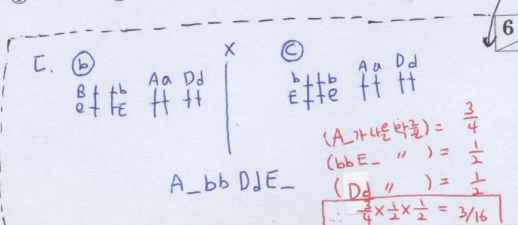 6
ㄷ. ⓑ X ⓒ
B b Aa Dd b b Aa Dd
e E E e
A_bb DdE_
(A_가 나올 확률) = 3/4
(bbE_ 〃 ) = 1/2
( Dd 〃 ) = 1/2
∴ 3/4 × 1/2 × 1/2 = 3/16